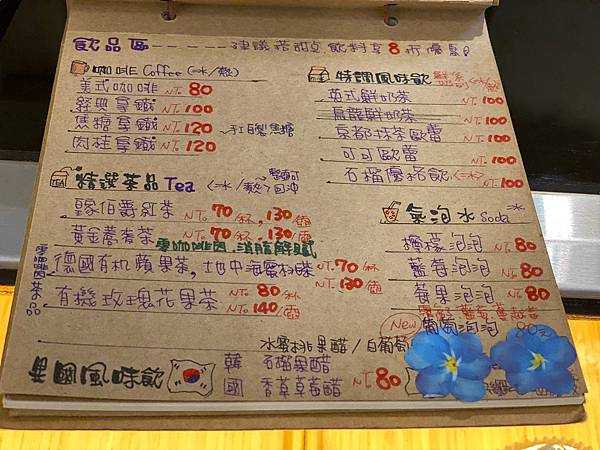 飲品區-----建議搭甜點飲料享8折優惠!
咖啡 Coffee (冰/熱)
美式咖啡 NT. 80
經典拿鐵 NT. 100
焦糖拿鐵 NT. 120 ~手工自製焦糖
肉桂拿鐵 NT. 120
特調風味飲
英式鮮奶茶 NT. 100
烏龍鮮奶茶 NT. 100
京都抹茶歐蕾 NT. 100
可可歐蕾 NT. 100
石榴優格飲<冰> NT. 100
精選茶品 Tea <冰/熱> 壺可回沖
皇家伯爵紅茶 NT. 70/杯, 130/壺
黃金蕎麥茶 NT. 70/杯, 130/壺
零咖啡因 消脂解膩
零咖啡因茶品
德國有机蘋果茶, NT. 70/杯 NT. 130/壺
有機玫瑰花果茶 NT. 80/杯 NT. 140/壺
氣泡水 Soda 冰
檸檬泡泡 NT. 80
藍莓泡泡 NT. 80
莓果泡泡 NT. 80
New 葡萄泡泡 80
異國風味飲
韓國
水蜜桃果醋/白葡萄
石榴果醋
香草草莓醋 NT. 80